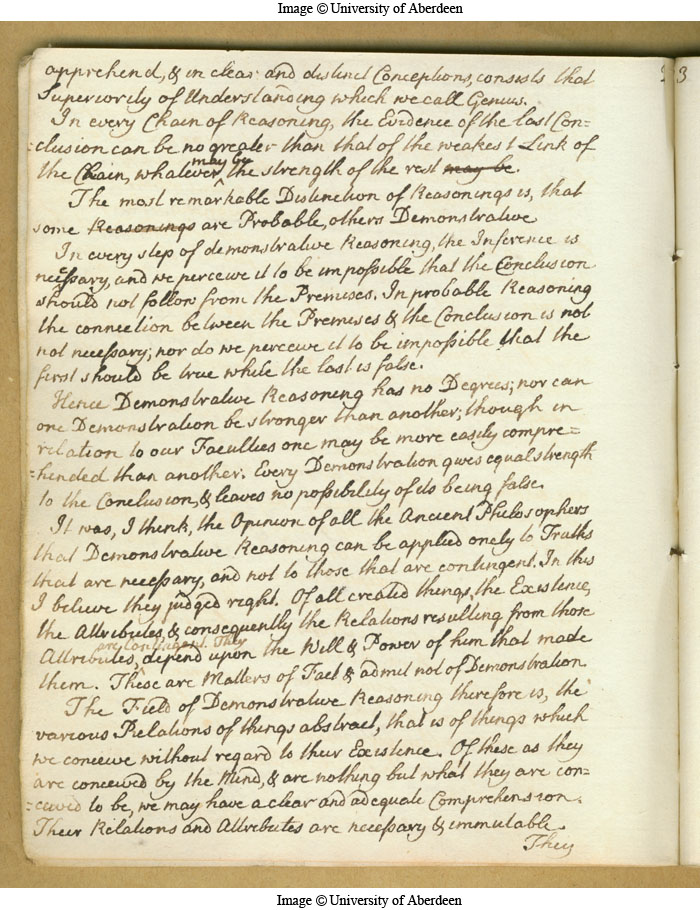 Image © University of Aberdeen
apprehend, & in clear and distinct Conceptions, consists that
Superiority of Understanding which we call Genius.
In every Chain of Reasoning, the Evidence of the last Con=
=clusion can be no greater than that of the weakest Link of
may be
the Chain, whatever the strength of the rest may be.
The most remarkable Distinction of Reasonings is, that
some Reasonings are Probable, others Demonstrative
In every step of demonstrative Reasoning, the Inference is
necessary, and we perceive it to be impossible that the Conclusion
should not follow from the Premises. In probable Reasoning
the connection between the Premises & the Conclusion is not
not necessary; nor do we perceive it to be impossible that the
first should be true while the last is false.
Hence Demonstrative Reasoning has no Degrees; nor can
one Demonstration be stronger than another; though in
relation to our Faculties one may be more easily compre=
=hended than another. Every Demonstration gives equal strength
to the Conclusion, & leaves no possibility of its being false.
It was, I think, the Opinion of all the Ancient Philosophers
that Demonstrative Reasoning can be applied onely to Truths
that are necessary, and not to those that are contingent. In this
I believe they judged right. Of all created things, the Existence,
the Attributes, & consequently the Relations resulting from those
are contingent. They
Attributes, depend upon the Will & Power of him that made
them. These are Matters of Fact & admit not of Demonstration
The Field of Demonstrative Reasoning therefore is, the
various Relations of things abstract, that is of things which
we conceive without regard to their Existence. Of these as they
are conceived by the Mind, & are nothing but what they are con=
=ceived to be, we may have a clear and adequate Comprehension.
Their Relations and Attributes are necessary & immutable.
They
3
Image © University of Aberdeen